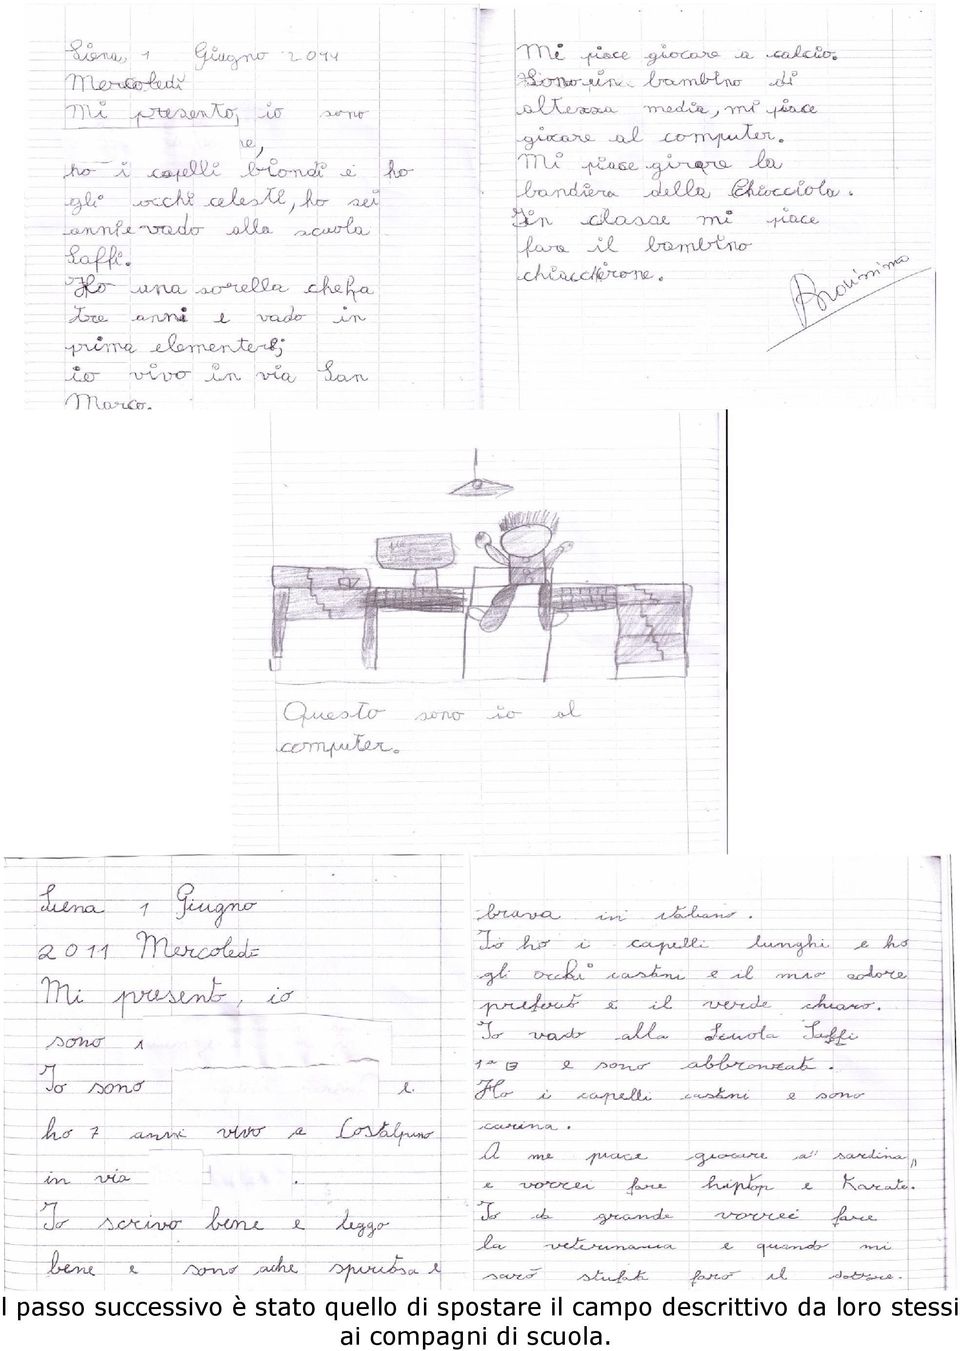 Siena, 1 Giugno 2011
Mercoledì
Mi presento, io sono
re,
ho i capelli biondi e ho
gli occhi celesti, ho sei
anni e vado alla scuola
Saffi.
Ho una sorella che ha
tre anni e vado in
prima elementare;
io vivo in via San
Marco.
Mi piace giocare a calcio.
Sono un bambino di
altezza media, mi piace
giocare al computer.
Mi piace girare la
bandiera della Chiocciola.
In classe mi piace
fare il bambino
chiacchierone.
Anonimo
Questo sono io al
computer.
Siena 1 Giugno
2011 Mercoledì
Mi presento, io
sono
Io sono e
ho 7 anni vivo a Costalpino
in via .
Io scrivo bene e leggo
bene e sono ache spiritosa e
brava in italiano.
Io ho i capelli lunghi e ho
gli occhi castani e il mio colore
preferito è il verde chiaro.
Io vado alla Scuola Saffi
1ª B e sono abbronzata.
Ho i capelli castani e sono
carina.
A me piace giocare a "sardina"
e vorrei fare hiptop e Karate.
Io da grande vorrei fare
la veterinaria e quando mi
sarò stufata farò il dottore.
l passo successivo è stato quello di spostare il campo descrittivo da loro stessi
ai compagni di scuola.